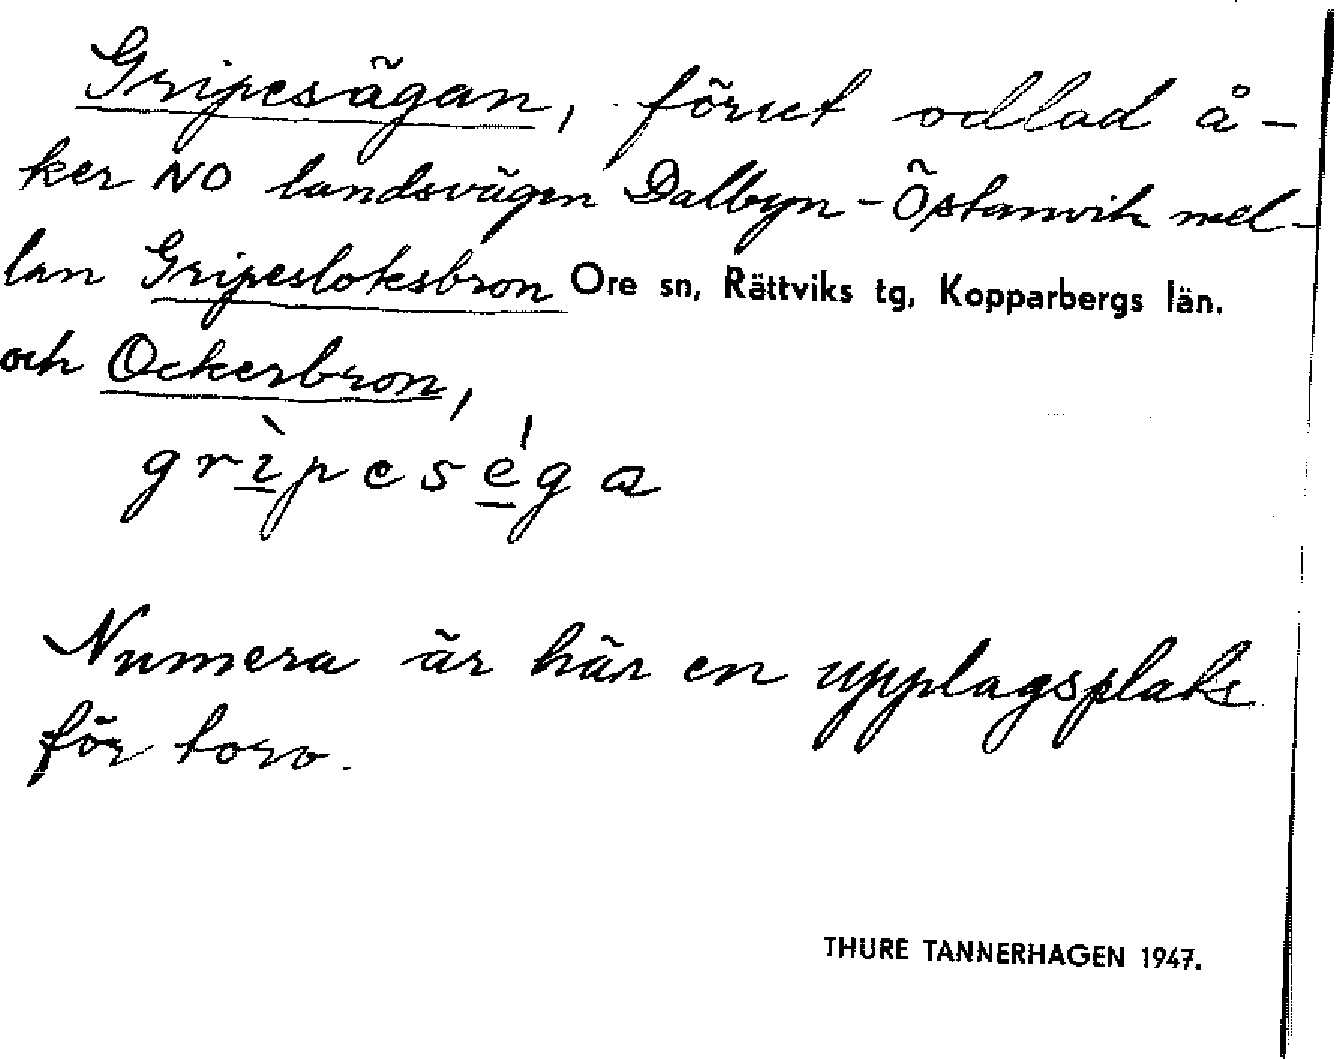 Gripesägan, förut odlad å-
ker NO landsvägen Dalbyn-Östanvik mel-
lan Gripesloksbron Ore sn, Rättviks tg, Kopparbergs län.
och Ockerbron,
grìpeség a
Numera är här en upplagsplats
för torv.
THURE TANNERHAGEN 1947.